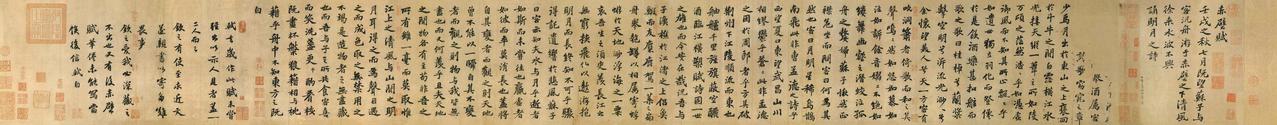 赤壁賦
壬戌之秋七月既望蘇子與
客泛舟游於赤壁之下清風
徐來水波不興
舉酒屬客
誦明月之詩
歌窈窕之章
少焉月出於東山之上裵回
於斗牛之間白露橫江水
光接天縱一葦之所如陵
萬頃之茫然浩浩乎如馮虛
御風而不知其所止飄飄乎
如遺世獨立羽化而登僊
於是飲酒樂甚扣舷而
歌之歌曰桂棹兮蘭槳
擊空明兮泝流光渺渺兮
余懷望美人兮天一方客有
吹洞簫者倚歌而和之其
聲嗚嗚然如怨如慕如
泣如訴餘音嫋嫋不絕如
縷舞幽壑之潛蛟泣孤
舟之嫠婦蘇子愀然正
襟危坐而問客曰何為其
然也客曰月明星稀烏鵲
南飛此非曹孟德之詩乎
西望夏口東望武昌山川
相繆鬱乎蒼蒼此非孟德
之困於周郎者乎方其破
荊州下江陵順流而東也
舳艫千里旌旗蔽空釃
酒臨江橫槊賦詩固一世
之雄也而今安在哉況吾與
子漁樵於江渚之上侶魚
鰕而友麋鹿駕一葉之扁
舟舉匏樽以相屬寄蜉
蝣於天地渺浮海之一粟
哀吾生之須臾羨長江之
無窮挾飛仙以遨遊抱
明月而長終知不可乎驟
得託遺響於悲風蘇子
曰客亦知夫水與月乎逝者
如斯而未嘗往也贏虛者
如彼而卒莫消長也蓋將
自其變者而觀之則天地
曾不能以一瞬自其不變
者而觀之則物與我皆無
盡也而又何羨乎且夫天地
之間物各有主苟非吾之
所有雖一毫而莫取惟
江上之清風與山間之明
月耳得之而為聲目遇
之而成色取之無禁用之
不竭是造物者之無盡藏
也而吾與子之所共食客喜
而笑洗盞更酌肴核既
盡杯盤狼籍相與枕
藉乎舟中不知東方之既
白
軾去歲作此賦未嘗
輕出以示人見者蓋一
二人而已
欽之有使至求近文
遂親書以寄多難
畏事
欽之愛我必深藏之
不出也又有後赤壁
賦筆倦未能寫當
俟後信軾白